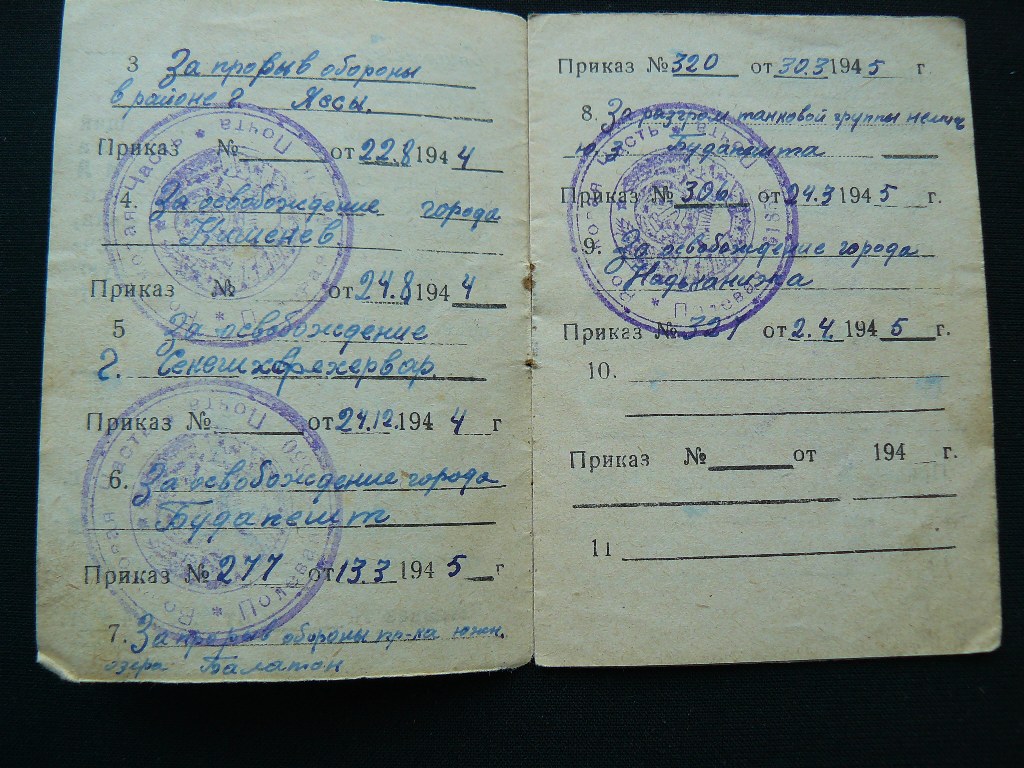 3 За прорыв обороны
в районе г. Яссы.
Приказ № от 22.8 194 4
4. За освобождение города
Кишенев
Приказ № от 24.8 194 4
5 За освобождение
г. Секешхфехервар.
Приказ № от 24.12. 194 4 г
6. За освобождение города
Будапешт
Приказ № 277 от 13.3 194 5 г
7. За прорыв обороны пр-ка южн.
озера Балатон
Приказ № 320 от 30.3 194 5 г.
8. За разгром танковой группы немцев
ю-з Будапешта
Приказ № 306 от 24.3 194 5 г.
9. За освобождение города
Надьканижа
Приказ № 321 от 2.4. 194 5 г.
10.
Приказ № от 194 г.
11
Войсковая Часть * Почта
Полевая